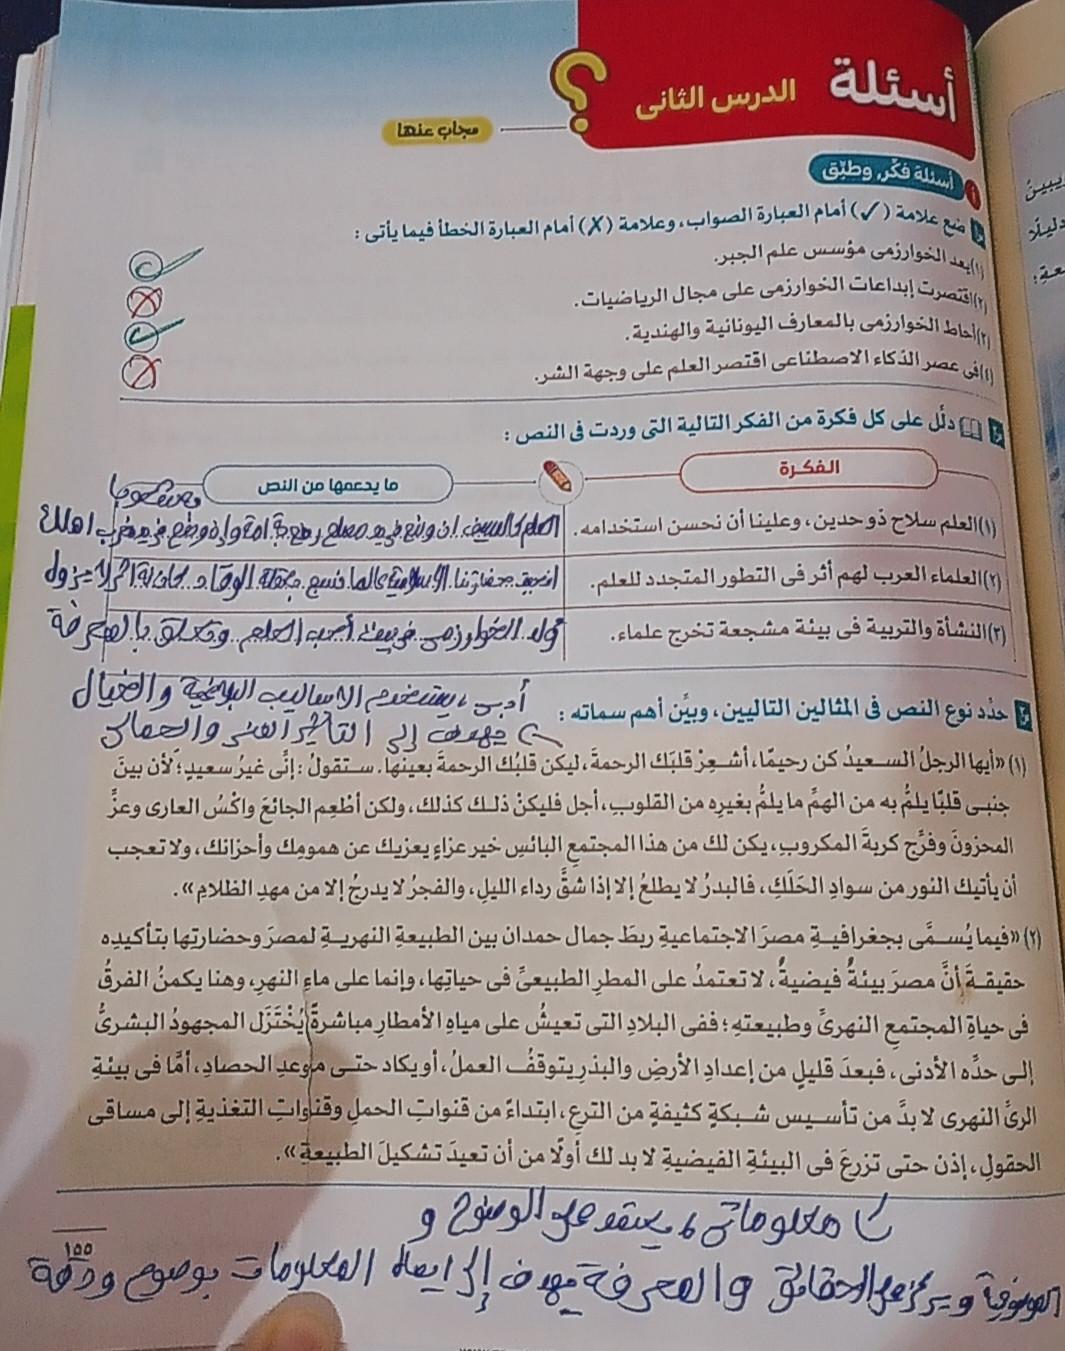 أسئلة الدرس الثانى
مجاب عنها
أ أسئلة فكّر، وطبّق
١ ضع علامة (✓) أمام العبارة الصواب، وعلامة (✗) أمام العبارة الخطأ فيما يأتى :
(١) يعد الخوارزمى مؤسس علم الجبر. ✓
(٢) اقتصرت إبداعات الخوارزمى على مجال الرياضيات. ✗
(٣) أحاط الخوارزمى بالمعارف اليونانية والهندية. ✓
(٤) فى عصر الذكاء الاصطناعى اقتصر العلم على وجهة الشر. ✗
٢ دلّل على كل فكرة من الفكر التالية التى وردت فى النص :
الفكرة
ما يدعمها من النص
(١) العلم سلاح ذو حدين، وعلينا أن نحسن استخدامه.
العلم كالسيف إن وضع فى يد مصلح
(٢) العلماء العرب لهم أثر فى التطور المتجدد للعلم.
انجبت حضارتنا الإسلامية عالما لا يزول
(٣) النشأة والتربية فى بيئة مشجعة تخرج علماء.
ولد الخوارزمى فى بيت أحب العلم وتعلق بالمعرفة
أدبى، يستخدم الاساليب البلاغية والخيال
٣ حدّد نوع النص فى المثالين التاليين، وبيّن أهم سماته :
يهدف إلى التأثير الفنى والجمالى
(١) «أيها الرجلُ السعيدُ كن رحيمًا، أشعِرْ قلبَك الرحمةَ، ليكن قلبُك الرحمةَ بعينها. ستقولُ : إنَّى غيرُ سعيدٍ؛ لأن بينَ
جنبى قلبًا يلمُّ به من الهمِّ ما يلمُّ بغيرِه من القلوبِ، أجل فليكنْ ذلك كذلك، ولكن أطْعِم الجائعَ واكْسُ العارى وعزِّ
المحزونَ وفرِّج كربةَ المكروبِ، يكن لك من هذا المجتمعِ البائسِ خير عزاءٍ يعزيك عن همومِك وأحزانك، ولا تعجب
أن يأتيك النور من سوادِ الحَلَكِ، فالبدرُ لا يطلعُ إلا إذا شقَّ رداء الليلِ، والفجرُ لا يدرجُ إلا من مهدِ الظلامِ».
(٢) «فيما يُسمَّى بجغرافيةِ مصرَ الاجتماعيةِ ربطَ جمال حمدان بين الطبيعةِ النهريةِ لمصرَ وحضارتِها بتأكيدِه
حقيقةَ أنَّ مصرَ بيئةٌ فيضيةٌ، لا تعتمدُ على المطرِ الطبيعىِّ فى حياتِها، وإنما على ماءِ النهرِ، وهنا يكمنُ الفرقُ
فى حياةِ المجتمعِ النهرىِّ وطبيعتِه؛ ففى البلادِ التى تعيشُ على مياهِ الأمطارِ مباشرةً يُخْتَزَل المجهودُ البشرىُّ
إلى حدِّه الأدنى، فبعدَ قليلٍ من إعدادِ الأرضِ والبذرِ يتوقفُ العملُ، أو يكاد حتى موعدِ الحصادِ، أمَّا فى بيئةِ
الرىِّ النهرى لا بدَّ من تأسيس شبكةٍ كثيفةٍ من الترعِ، ابتداءً من قنواتِ الحملِ وقنواتِ التغذيةِ إلى مساقى
الحقولِ، إذن حتى تزرعَ فى البيئةِ الفيضيةِ لا بد لك أولًا من أن تعيدَ تشكيلَ الطبيعةِ».
معلوماتى، يعتمد على الوضوح و
الموضوعية ويركز على الحقائق والمعرفة يهدف إلى ايصال المعلومات بوضوح ودقة
١٥٥